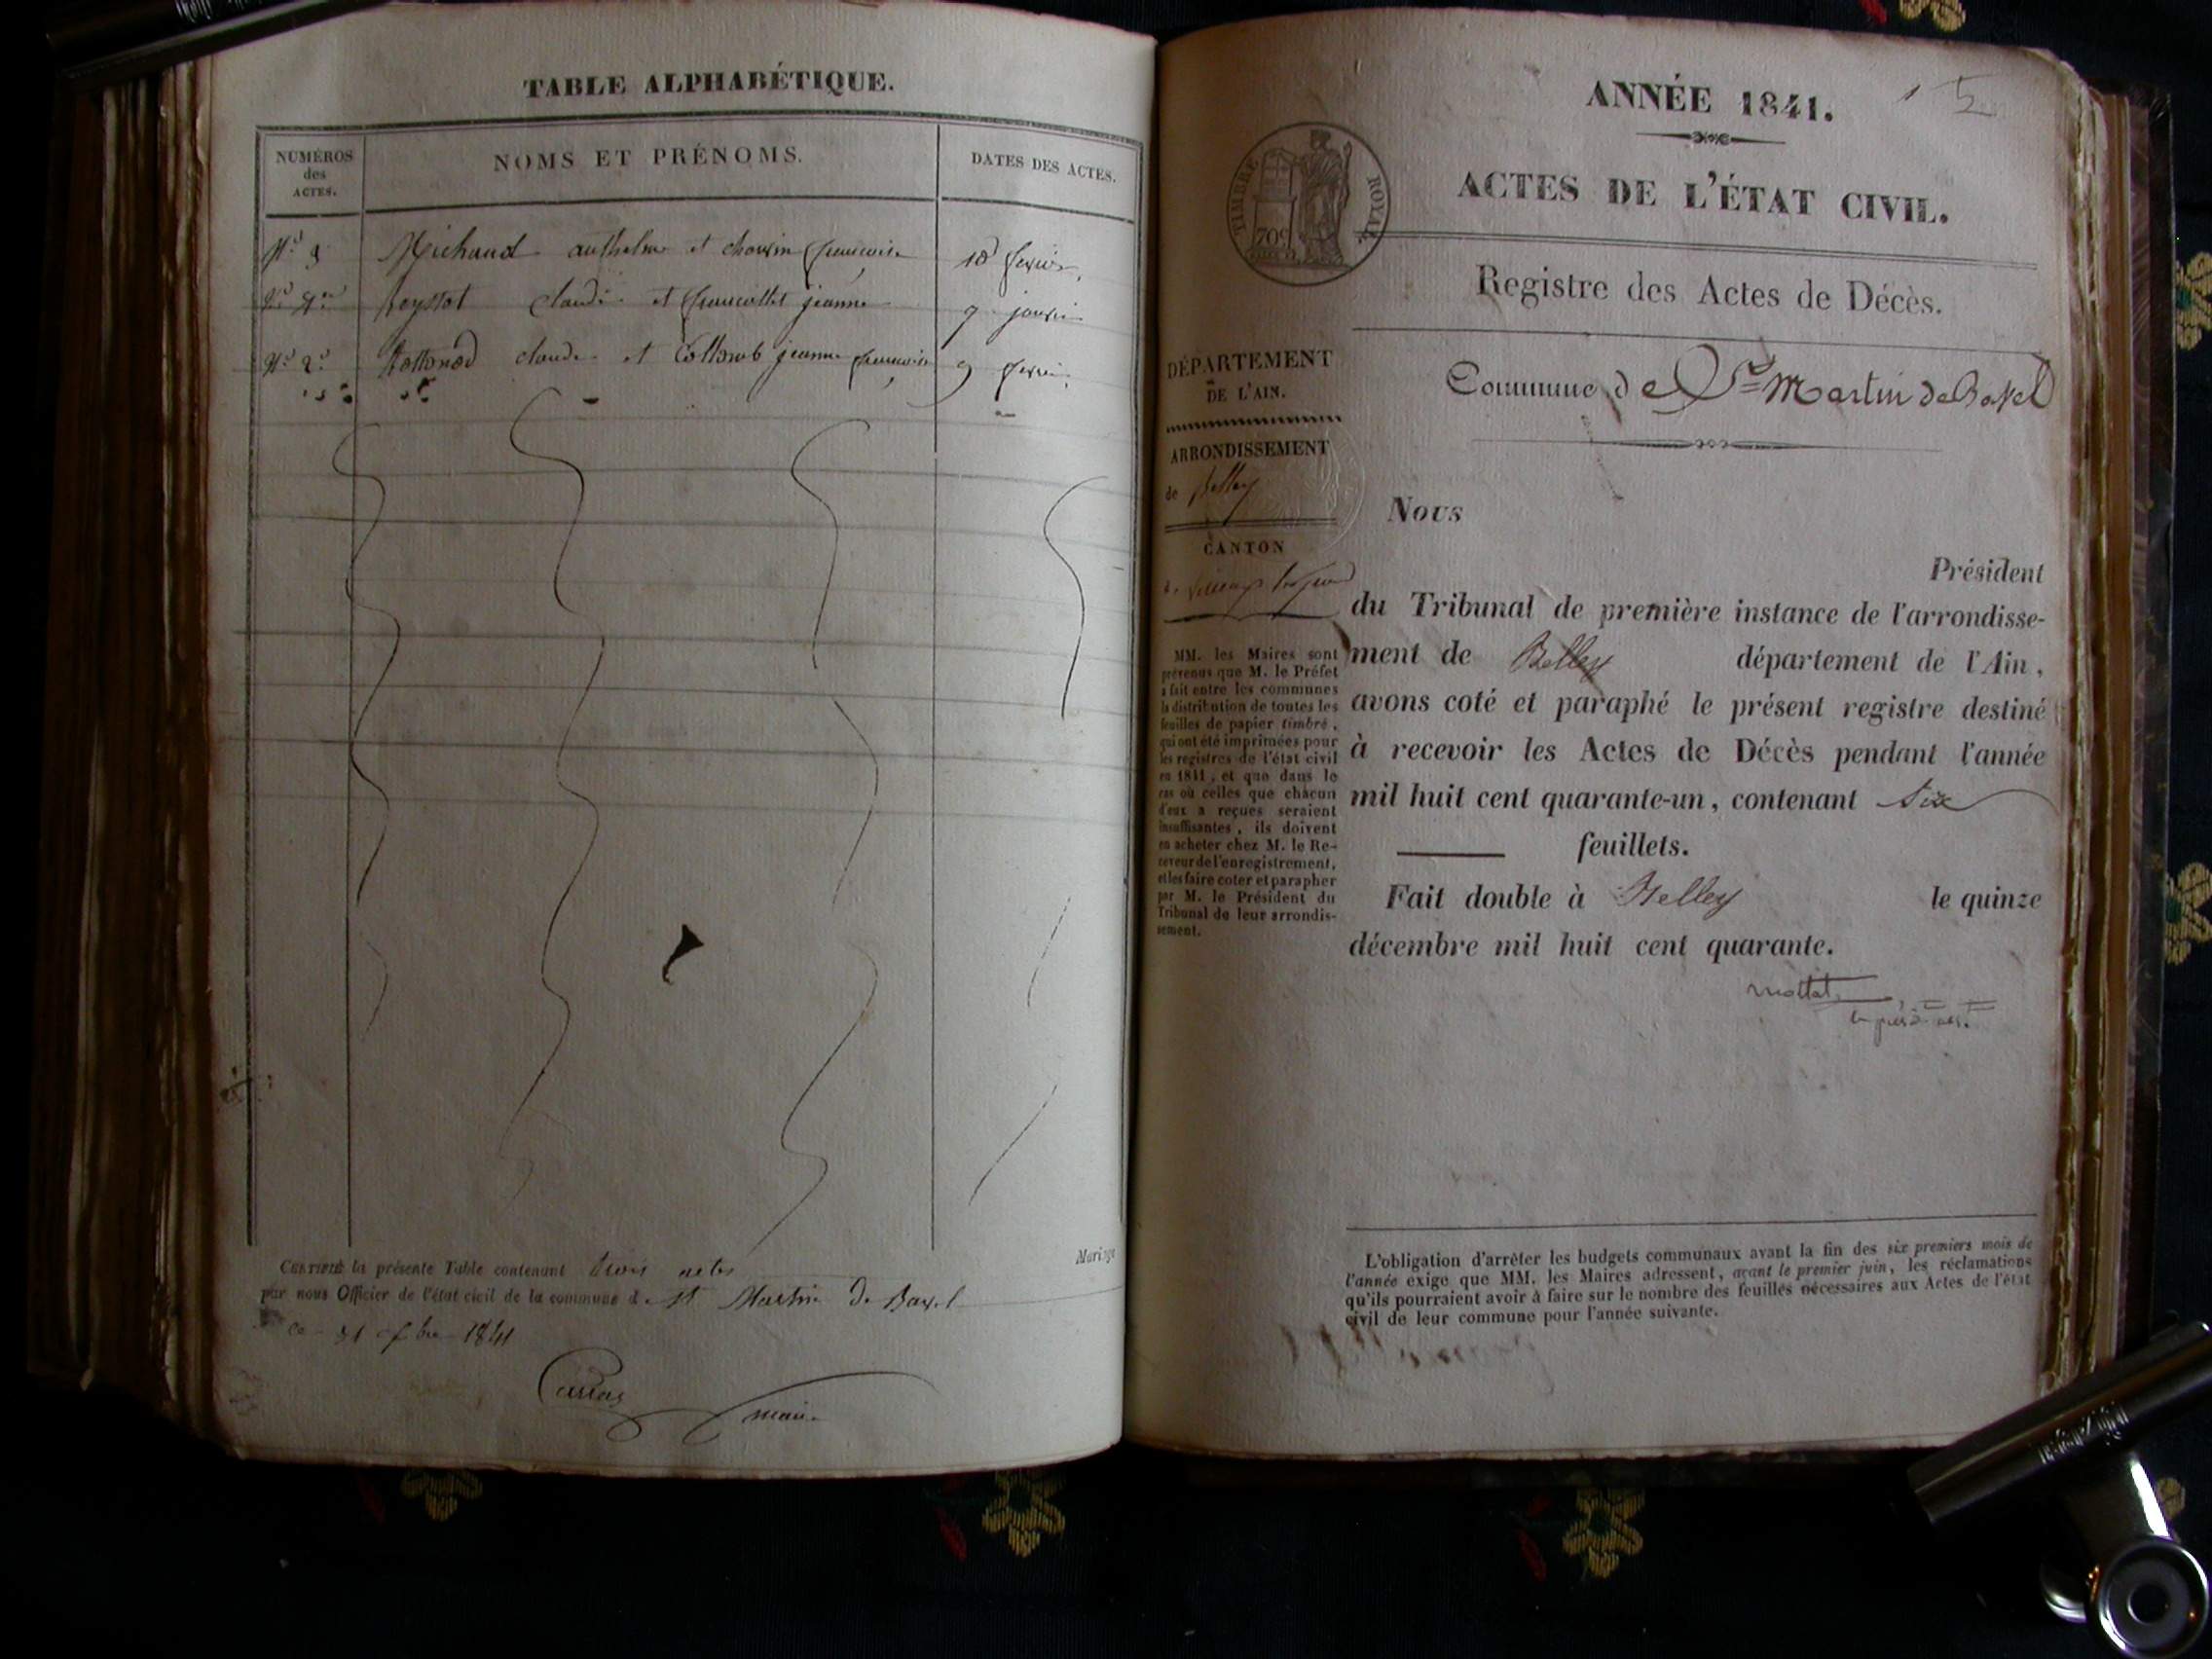 TABLE ALPHABÉTIQUE.
NUMÉROS
des
ACTES.
NOMS ET PRÉNOMS.
DATES DES ACTES.
Nº 3 Michaud anthelme et françoise 10 fevrier
claude et jeanne 9 janvier
Nº 2 claude et Collomb jeanne françoise 9 fevrier
Mariage
CERTIFIÉ la présente Table contenant trois actes
par nous Officier de l'état civil de la commune de St Martin de Bavel
ce 31 1841
maire
ANNÉE 1841.
ACTES DE L'ÉTAT CIVIL.
TIMBRE ROYAL
70c
Registre des Actes de Décès.
Commune de St Martin de Bavel
DÉPARTEMENT
DE L'AIN.
ARRONDISSEMENT
de Belley
CANTON
MM. les Maires sont
prévenus que M. le Préfet
a fait entre les communes
la distribution de toutes les
feuilles de papier timbré,
qui ont été imprimées pour
les registres de l'état civil
en 1841, et que dans le
cas où celles que chacun
d'eux a reçues seraient
insuffisantes, ils doivent
en acheter chez M. le Re-
ceveur de l'enregistrement,
et les faire coter et parapher
par M. le Président du
Tribunal de leur arrondis-
sement.
Nous
Président
du Tribunal de première instance de l'arrondisse-
ment de Belley département de l'Ain,
avons coté et paraphé le présent registre destiné
à recevoir les Actes de Décès pendant l'année
mil huit cent quarante-un, contenant six
feuillets.
Fait double à Belley le quinze
décembre mil huit cent quarante.
L'obligation d'arrêter les budgets communaux avant la fin des six premiers mois de
l'année exige que MM. les Maires adressent, avant le premier juin, les réclamations
qu'ils pourraient avoir à faire sur le nombre des feuilles nécessaires aux Actes de l'état
civil de leur commune pour l'année suivante.